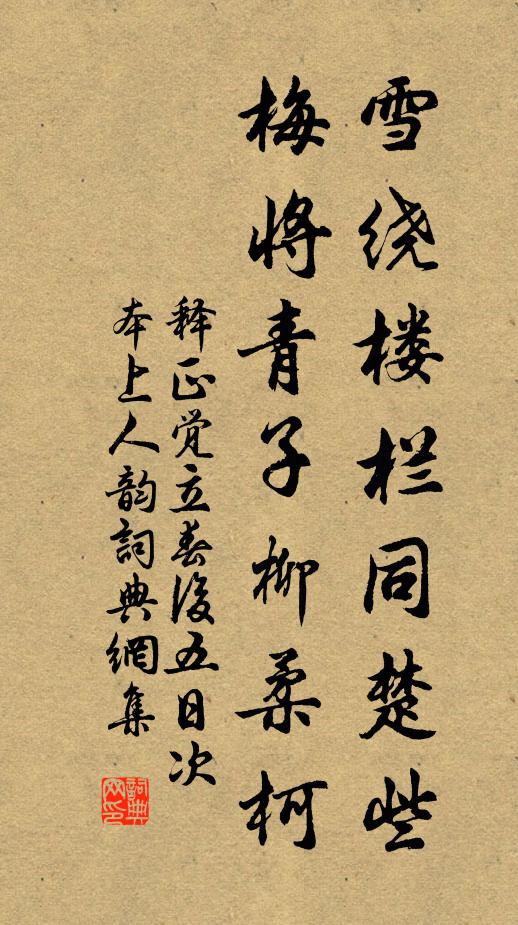 雪绕楼栏同楚些
梅将青子柳柔柯
释正觉立春後五日次
本上人韵詞典網集
詞典网印